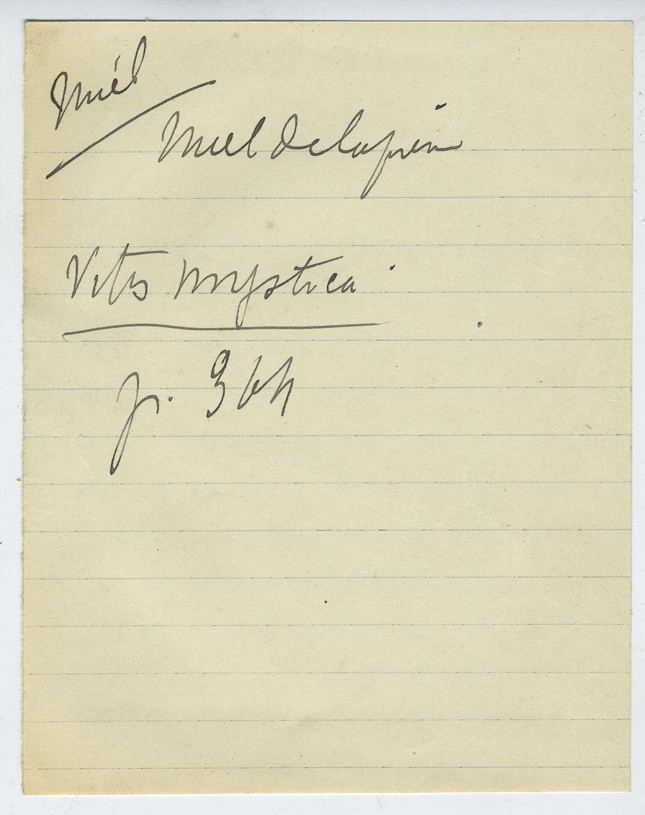 Miel
Miel de la
Vitis mystica
p. 364